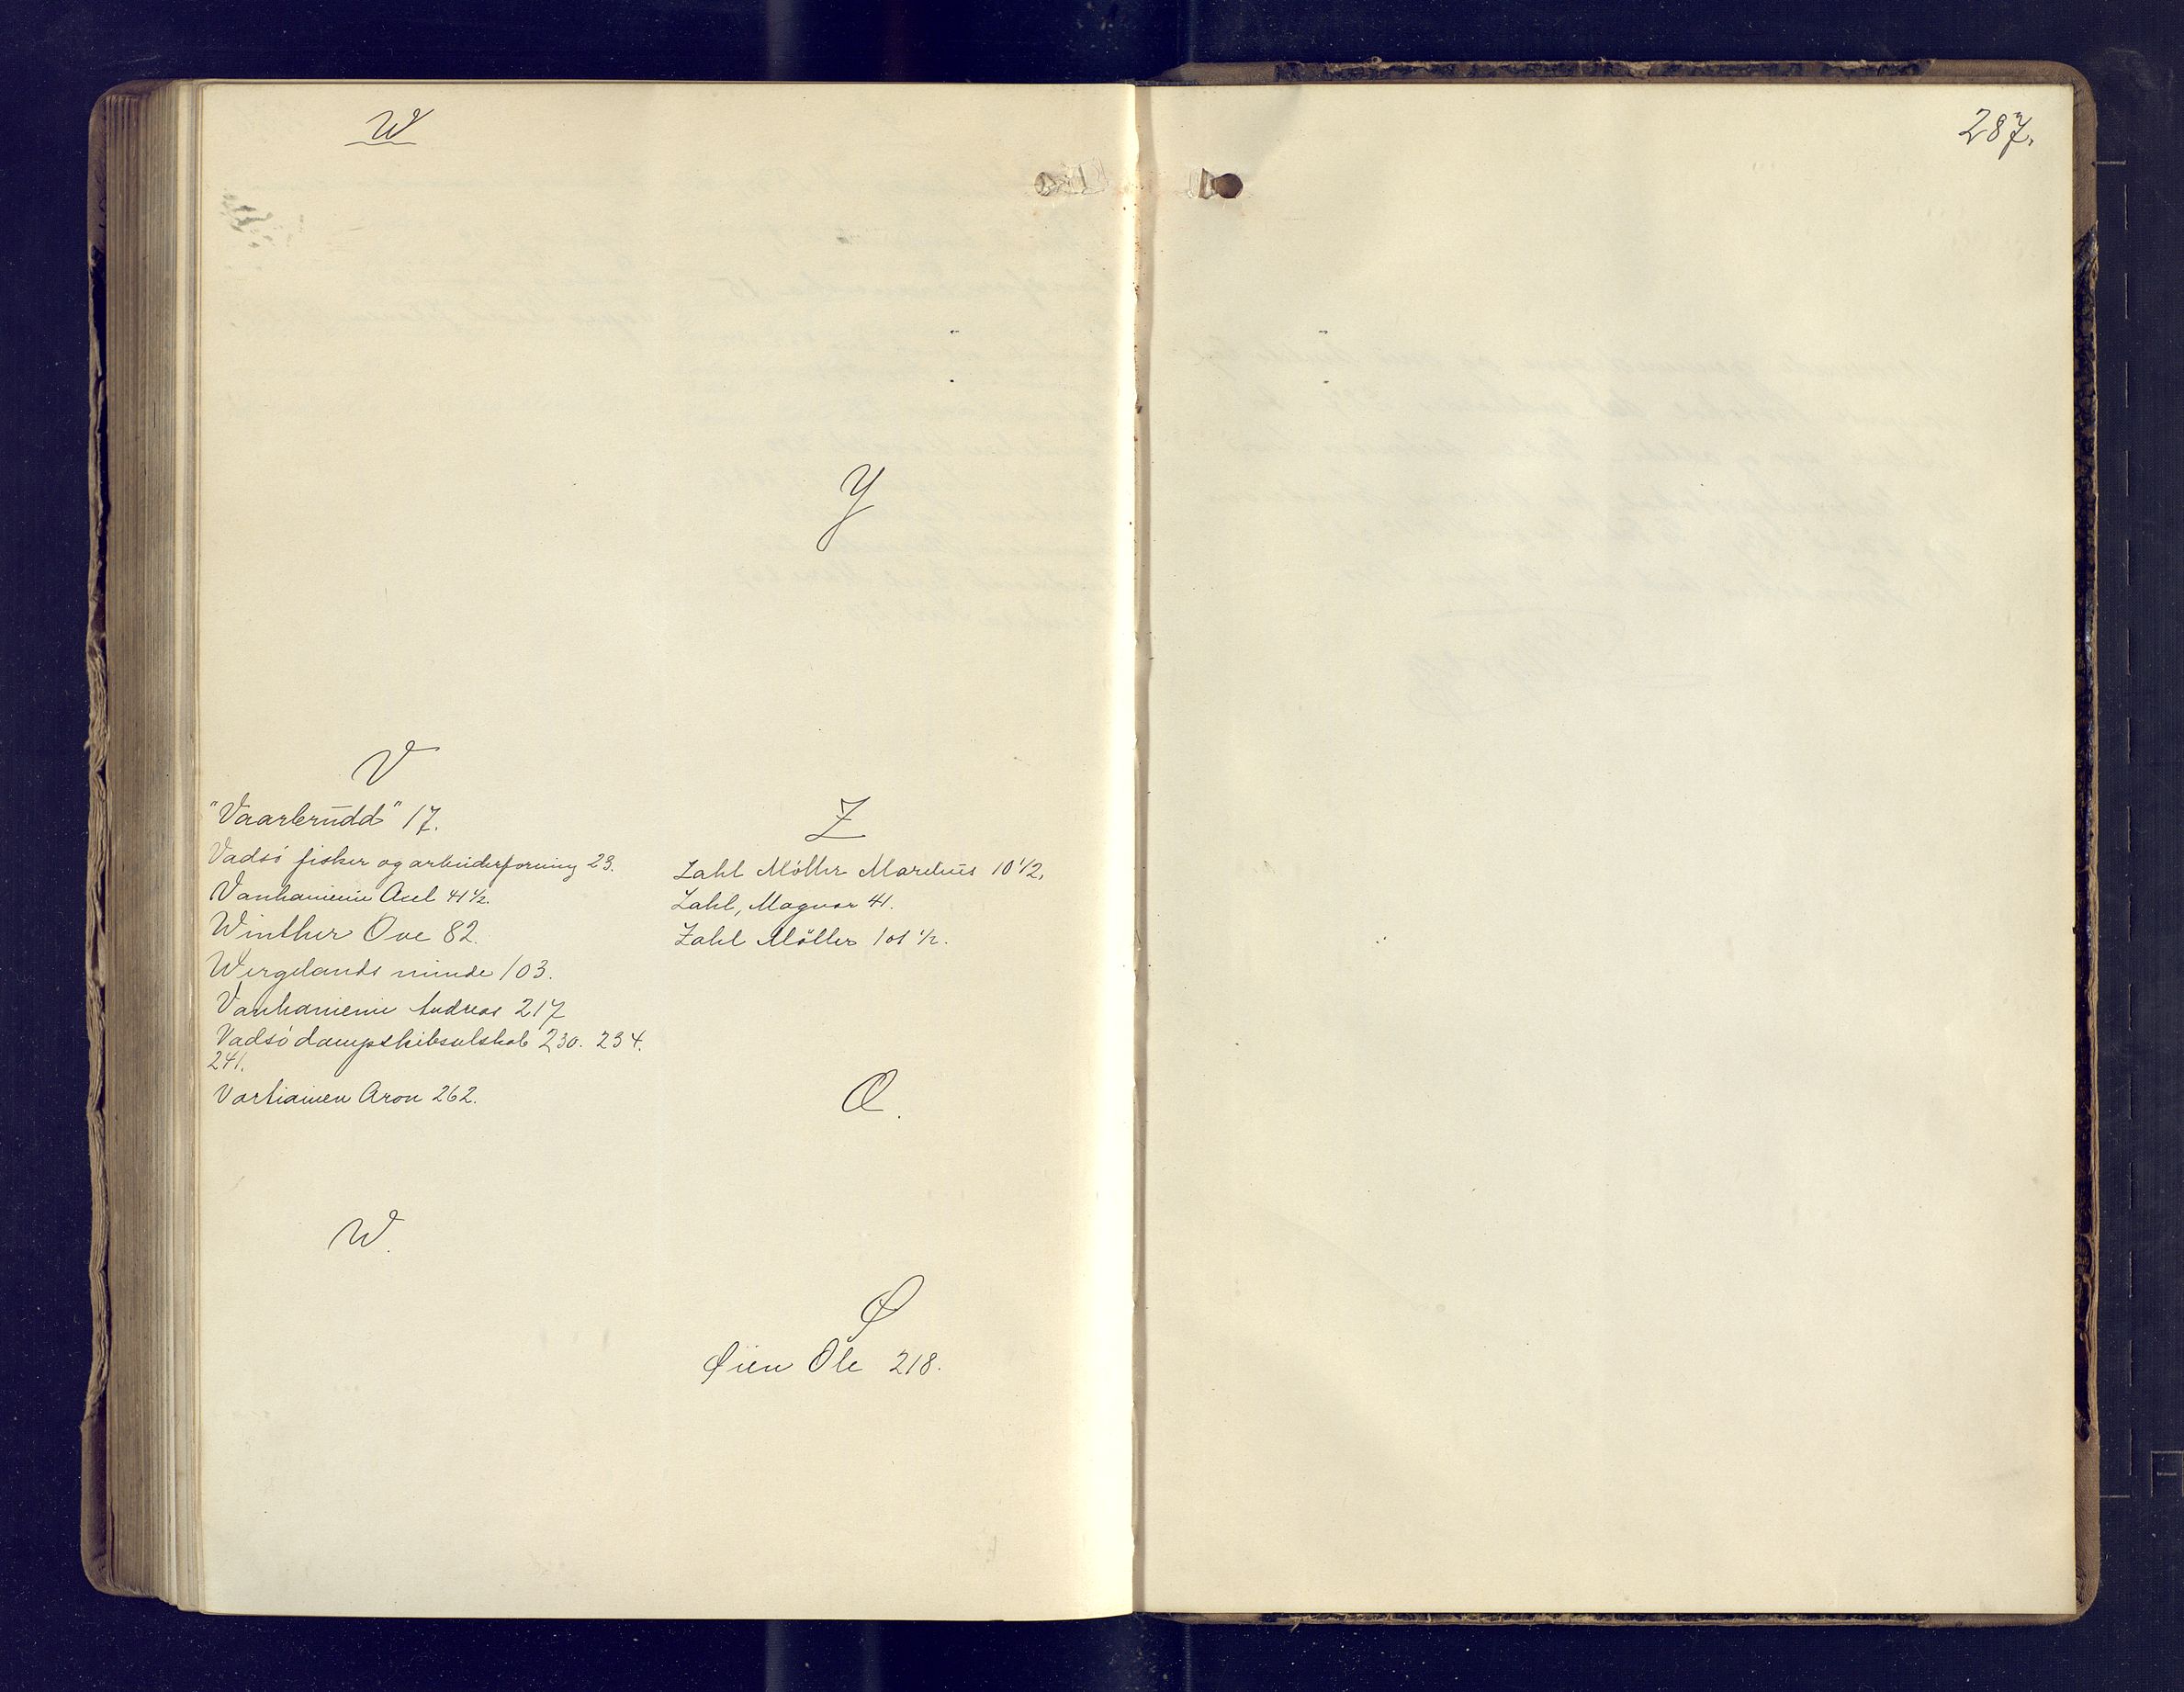 W
V
"Vaarbrudd" 17.
Vadsö fisker og arbeiderforening 23.
Vanhaninin Axel 41 1/2.
Winther Ove 82.
Wergelands minde 103.
Vanhaninin Andreas 217
Vadsö dampskibselskab 230. 234.
241.
Vartiainen Aron 262.
W.
Y
Z
Zahl Möller Mardius 10 1/2.
Zahl, Magnar 41.
Zahl Möller 101 1/2.
Æ.
Ø
Øien Ole 218.
287.